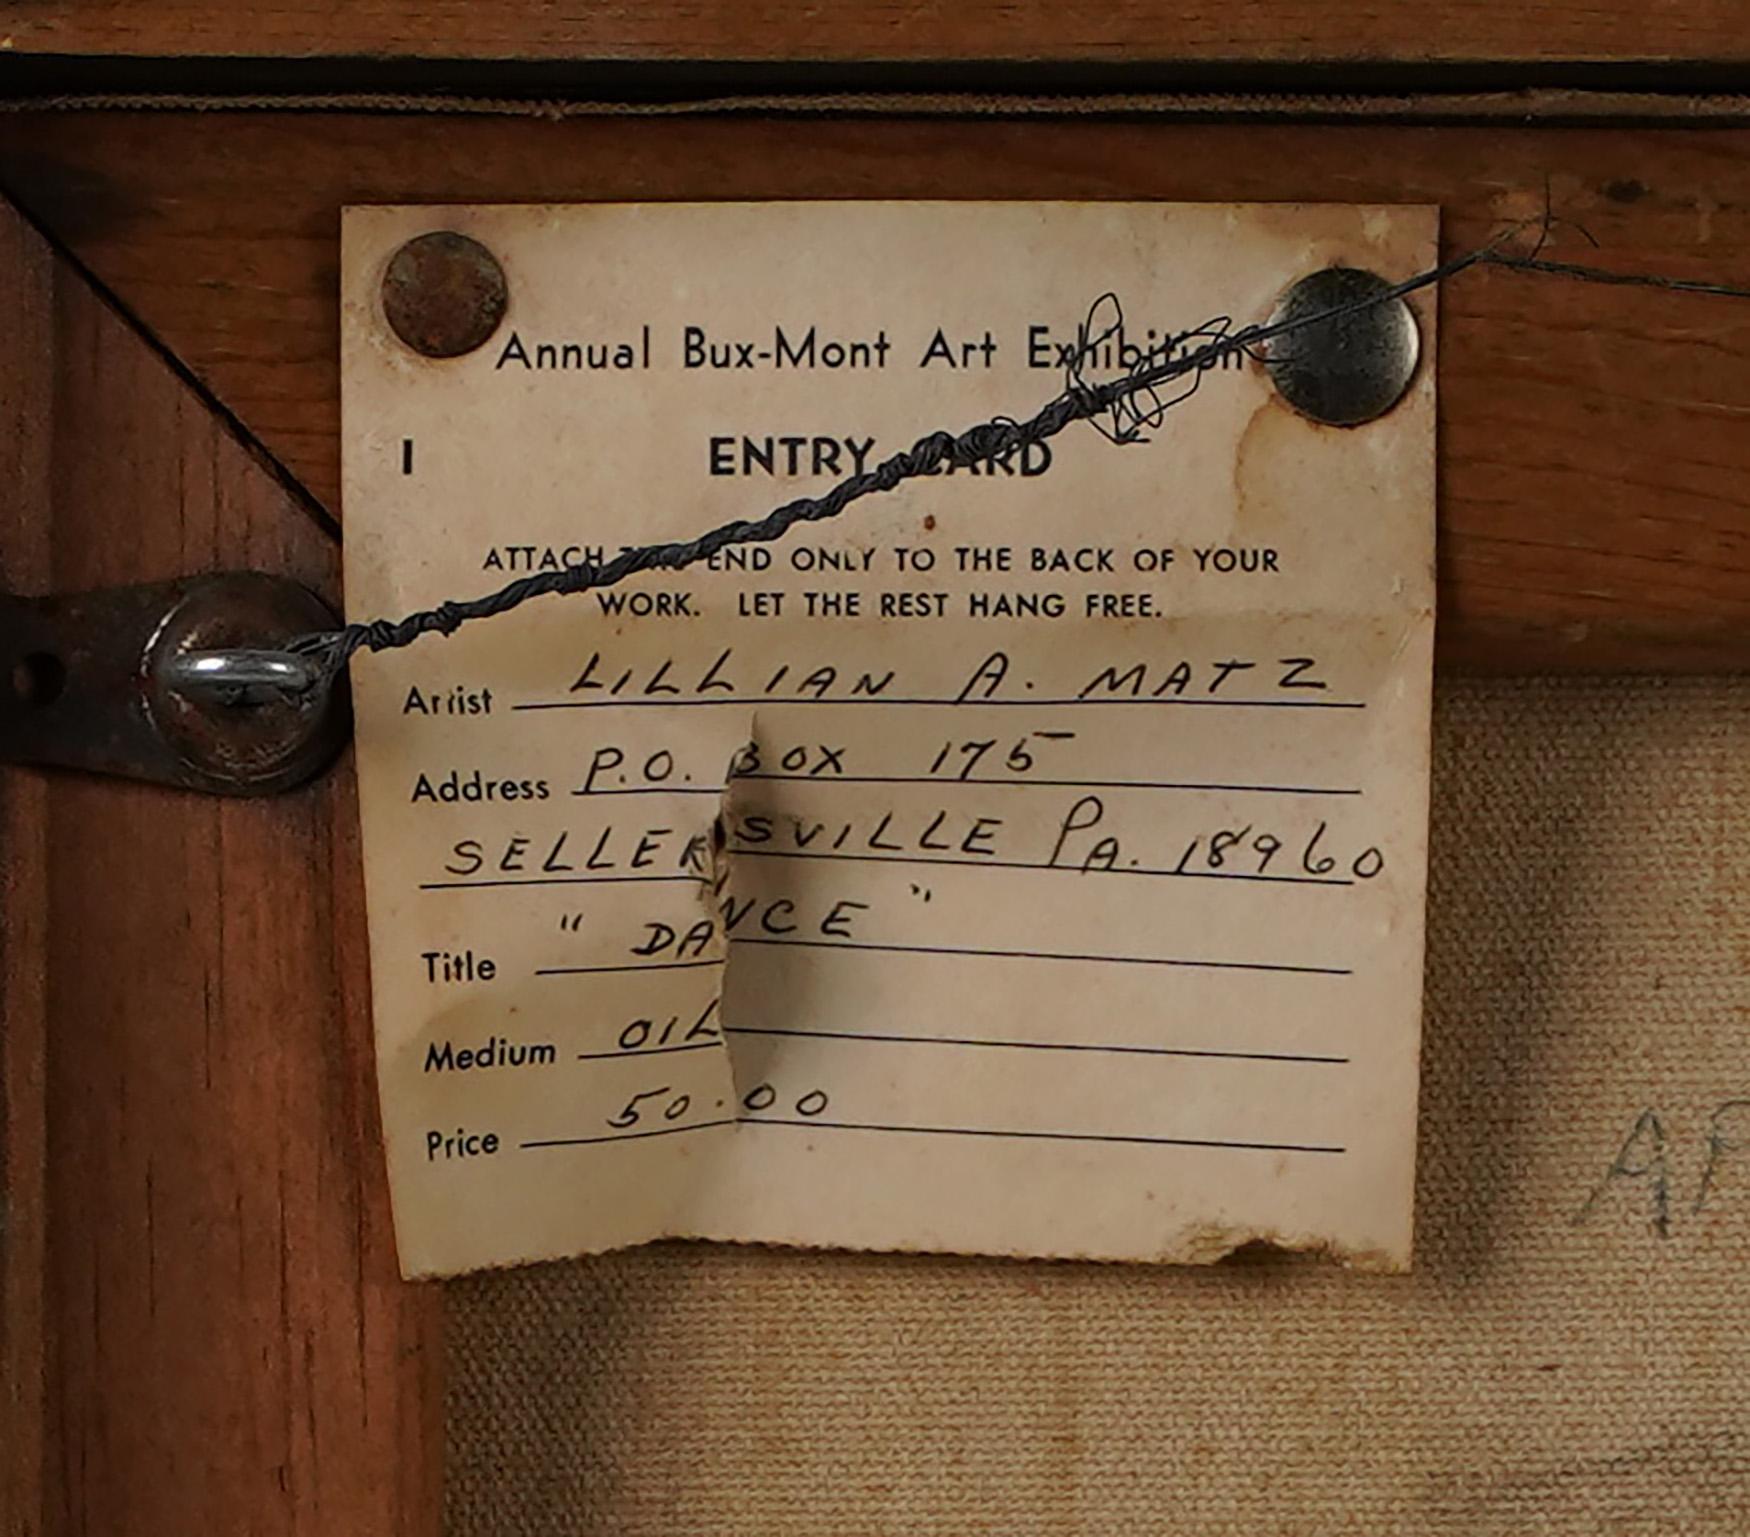 Annual Bux-Mont Art Exhibition
I ENTRY CARD
ATTACH THIS END ONLY TO THE BACK OF YOUR
WORK. LET THE REST HANG FREE.
Artist LILLIAN A. MATZ
Address P.O. BOX 175
SELLERSVILLE PA. 18960
Title "DANCE"
Medium OIL
Price 50.00